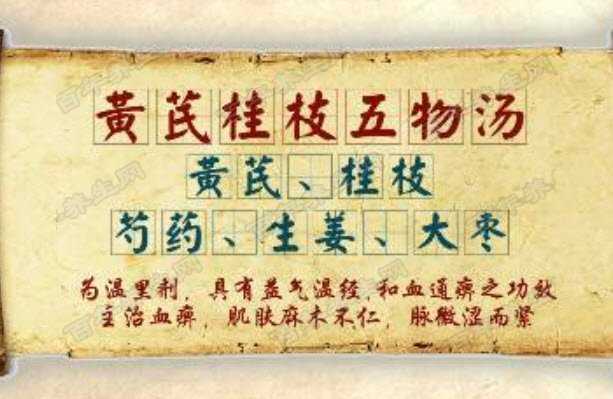 黄芪桂枝五物汤
黄芪、桂枝
芍药、生姜、大枣
为温里剂，具有益气温经,和血通痹之功效
主治血痹，肌肤麻木不仁，脉微涩而紧